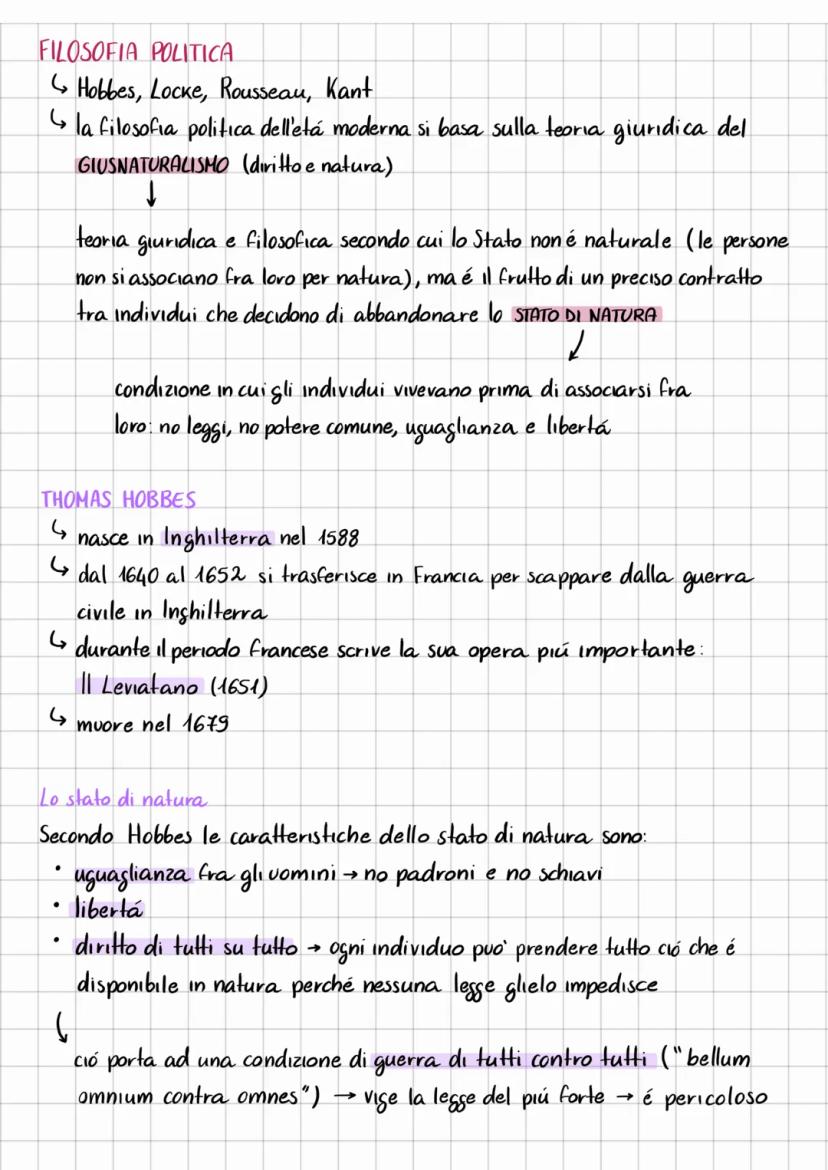 FILOSOFIA POLITICA
↳ Hobbes, Locke, Rousseau, Kant
↳ la filosofia politica dell'etá moderna si basa sulla teoria giuridica del
GIUSNATURALISMO (diritto e natura)
↓
teoria giuridica e filosofica secondo cui lo Stato non é naturale (le persone
non si associano fra loro per natura), ma é il frutto di un preciso contratto
tra individui che decidono di abbandonare lo STATO DI NATURA
↓
condizione in cui gli individui vivevano prima di associarsi fra
loro: no leggi, no potere comune, uguaglianza e libertá
THOMAS HOBBES
↳ nasce in Inghilterra nel 1588
↳ dal 1640 al 1652 si trasferisce in Francia per scappare dalla guerra
civile in Inghilterra
↳ durante il periodo francese scrive la sua opera piú importante:
Il Leviatano (1651)
↳ muore nel 1679
Lo stato di natura
Secondo Hobbes le caratteristiche dello stato di natura sono:
• uguaglianza fra gli uomini → no padroni e no schiavi
• libertá
• diritto di tutti su tutto → ogni individuo puo' prendere tutto ció che é
disponibile in natura perché nessuna legge glielo impedisce
↓
ció porta ad una condizione di guerra di tutti contro tutti ("bellum
omnium contra omnes") → vige la legge del piú forte → é pericoloso